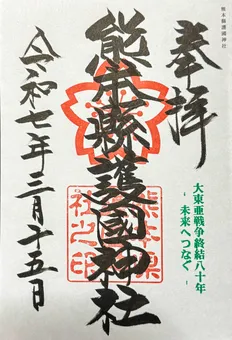 熊本縣護國神社
奉拝
大東亜戦争終結八十年
- 未来へつなぐ -
熊本縣護國神社
熊本県
護國神
社之印
令和七年三月十五日